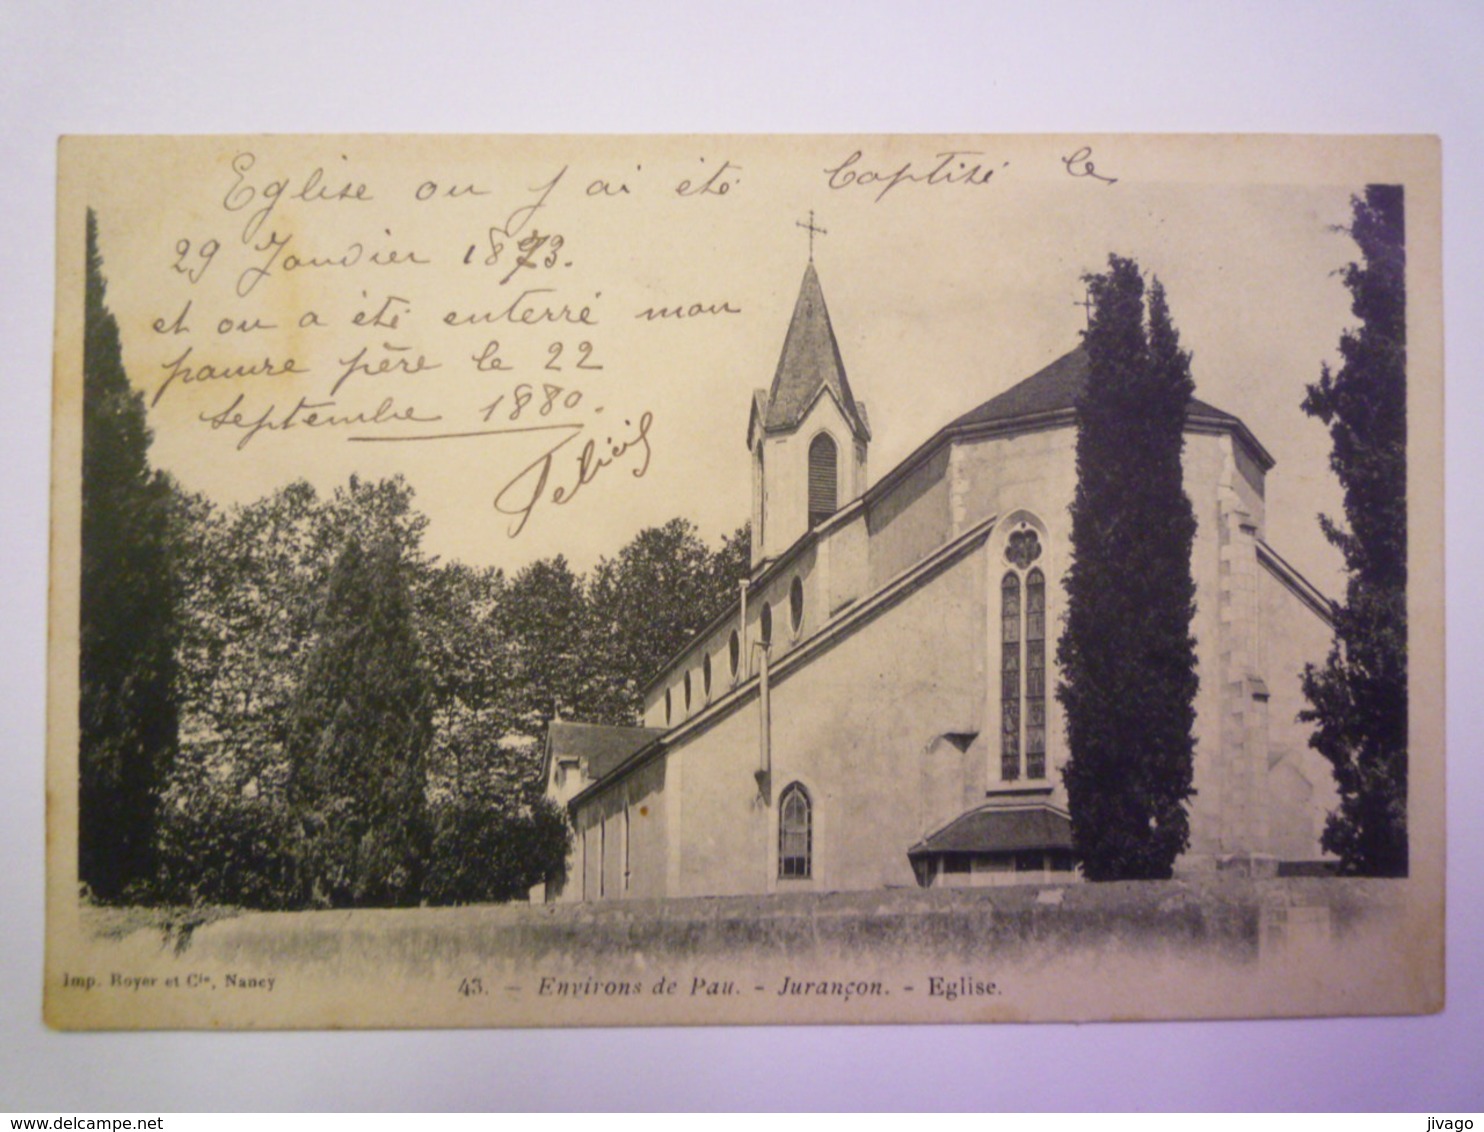 Eglise ou j'ai été baptisé le
29 Janvier 1873.
et ou a été enterré mon
pauvre père le 22
Septembre 1880.
Felicis
Imp. Royer et Cie, Nancy
43. - Environs de Pau. - Jurançon. - Eglise.
delcampe.net
jivago